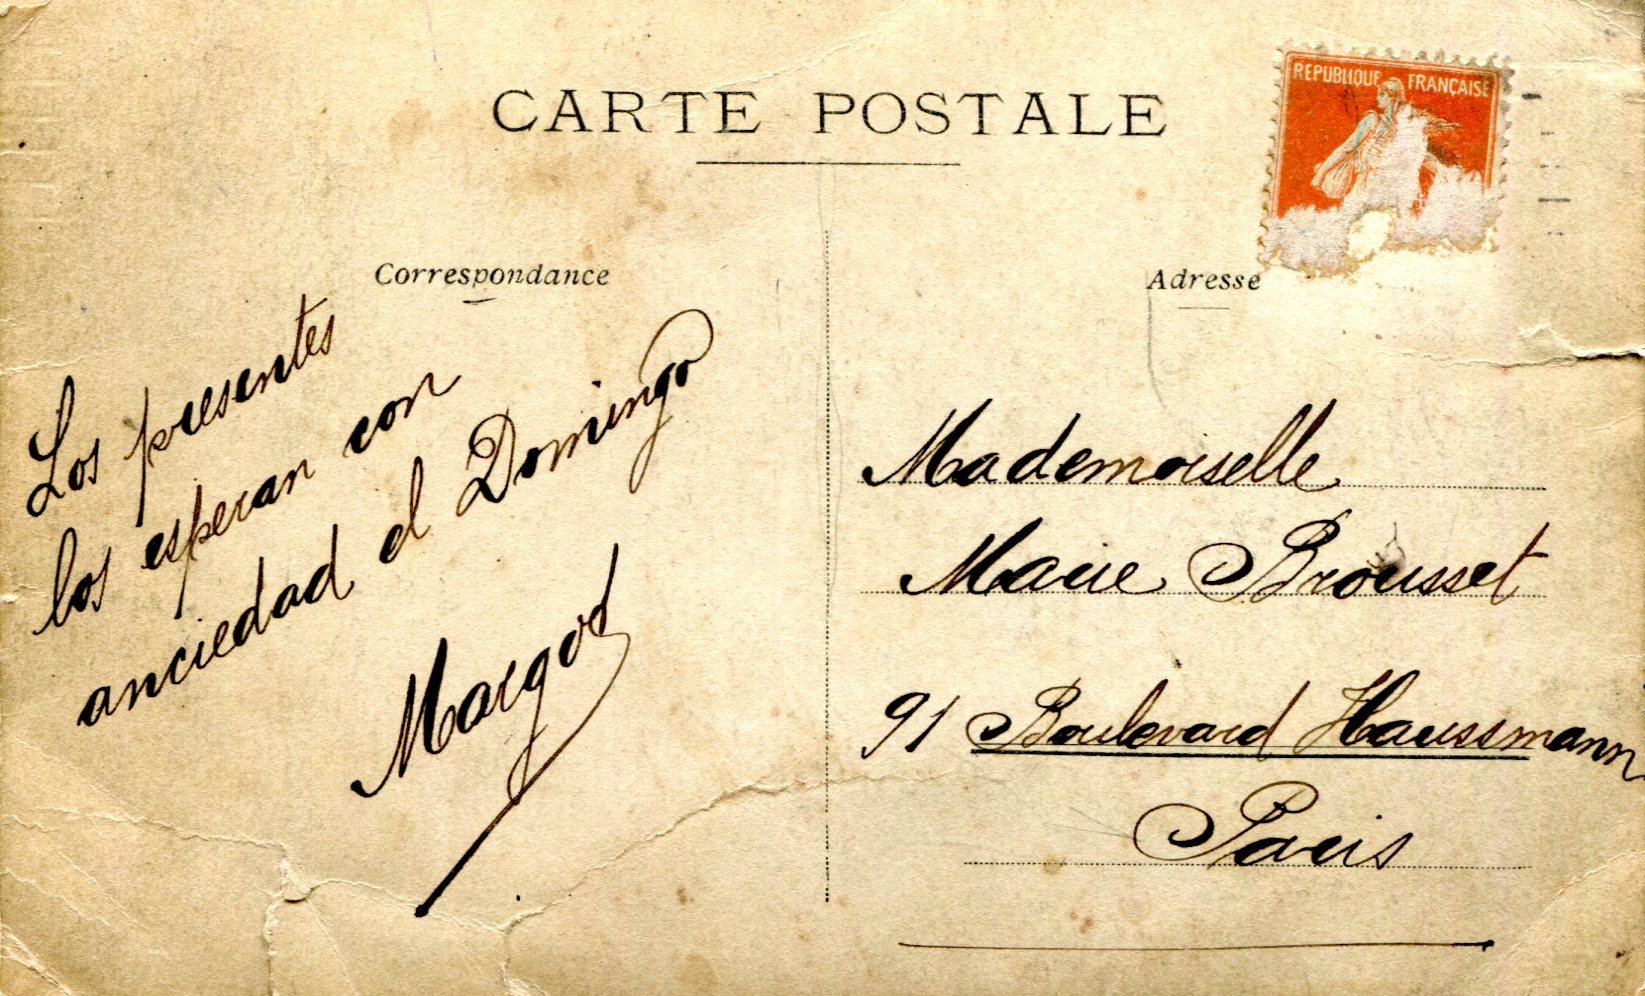 CARTE POSTALE
REPUBLIQUE FRANÇAISE
Correspondance
Los presentes
los esperan con
anciedad el Domingo
Margot
Adresse
Mademoiselle
Marie Brousset
91 Boulevard Haussmann
Paris